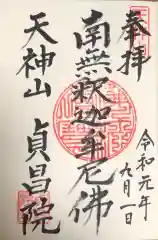 奉拝
令和元年
九月一日
南無釈迦牟尼佛
天神山
貞昌院